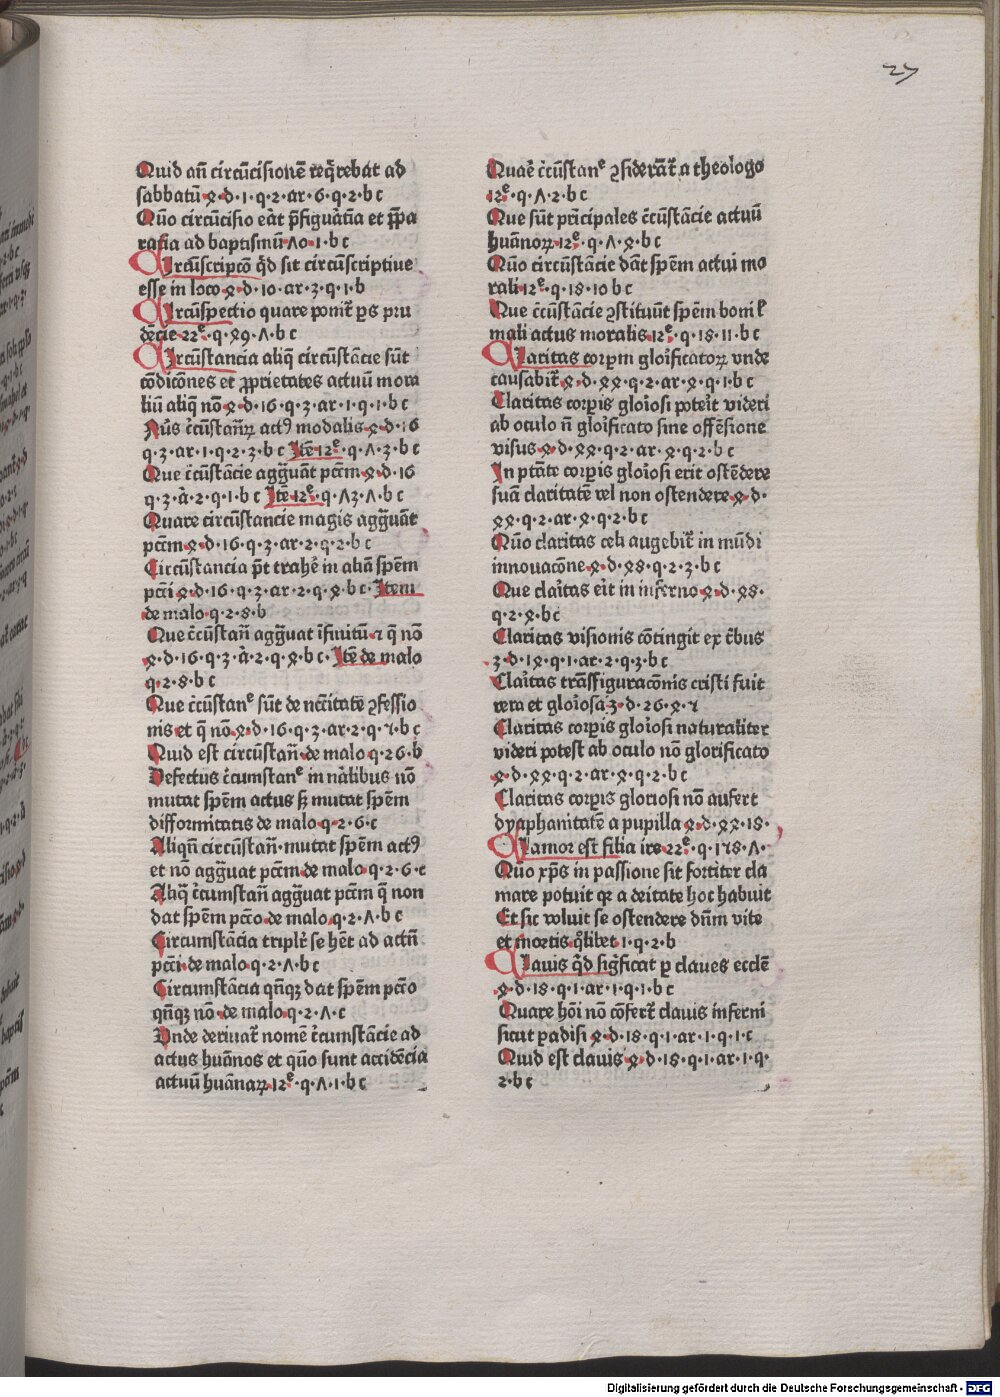 27
Quid añ circũcisionẽ req̃rebat ad
sabbatũ 4·d·1·q·2·ar·6·q·2·b c
Quõ circũcisio eãt p̃figuãtĩa et p̃pa
ratĩa ad baptismũ 70·1·b c
Circũscripcõ q̃d sit circũscriptiue
esse in loco 4·d·10·ar·3·q·1·b
Circũspectio quare ponit᷑ ps pru
dẽcie 22ᵉ·q·49·7·b c
Circũstancia aliq̃ circũstãcie sũt
cõdicões et ꝓprietates actuũ mora
liũ aliq̃ nõ 4·d·16·q·3·ar·1·q·1·b c
Nũs c̃cũstañꝝ actꝰ modalis 4·d·16
q·3·ar·1·q·2·3·b c Itẽ 12ᵉ·q·7·3·b c
Que c̃cũstãcie agg̃uãt pctm̃ 4·d·16
q·3·ã·2·q·1·b c Itẽ 12ᵉ·q·73·7·b c
Quare circũstancie magis agg̃uãt
pctm̃ 4·d·16·q·3·ar·2·q·2·b c
Circũstancia p̃t trahẽ in aliã spẽm
pctĩ 4·d·16·q·3·ar·2·q·4·b c·Item
de malo·q·2·8·b
Que c̃cũstañ agg̃uat ĩfinitũ ⁊ q̃ nõ
4·d·16·q·3·ã·2·q·4·b c·Itẽ de malo
q·2·8·b c
Que c̃cũstanᵉ sũt de nc̃citate ꝯfessio
nis et q̃ nõ·4·d·16·q·3·ar·2·q·5·b c
Quid est circũstañ·de malo q·26·b
Defectus c̃cumstanᵉ in nãlibus nõ
mutat spẽm actus sꝫ mutat spẽm
difformitatis de malo·q·2·6·c
Aliqñ circũstañ·mutat spẽm actꝰ
et nõ agg̃uat pctm̃·de malo·q·2·6·c
Aliq̃ c̃cumstañ agg̃uat pctm̃ q̃ non
dat spẽm pctõ·de malo·q·2·7·b c
Circumstãcia triplr̃ se hẽt ad actũ
pctĩ·de malo·q·2·7·b c
Circumstãcia qñqꝫ dat spẽm pctõ
qñqꝫ nõ·de malo·q·2·7·c
Unde deriuat᷑ nomẽ c̃cumstãcie ad
actus huãnos et quõ sunt accidẽcia
actuũ huãnaꝝ·12ᵉ·q·7·1·b c
Quaẽ c̃cũstanᵉ ꝯsiderãt᷑ a theologo
12ᵉ·q·7·2·b c
Que sũt prĩcipales c̃cũstãcie actuũ
huãnoꝝ·12ᵉ·q·7·4·b c
Quõ circũstãcie dãt spẽm actui mo
rali·12ᵉ·q·18·10 b c
Que c̃cũstãcie ꝯstituũt spẽm boni ł
mali actus moralis 12ᵉ·q·18·11·b c
Claritas corpm̃ gloĩficatoꝝ vnde
causabit᷑ 4·d·44·q·2·ar·4·q·1·b c
Claritas corpis gloĩosi poteĩt videri
ab oculo ñ gloĩficato sine offẽsione
visus 4·d·44·q·2·ar·4·q·2·b c
In ptãte corpis gloĩosi erit ostẽdere
suã claritatẽ vel non ostendere 4·d·
44·q·2·ar·4·q·2·b c
Quõ claritas celi augebit᷑ in mũdi
innouacõne·4·d·48·q·2·3·b c
Que claĩtas eĩt in inferno 4·d·48·
q·2·4·bc
Claritas visionis cõtingit ex t̃bus
3·d·14·q·1·ar·2·q·3·b c
Claĩtas trãsfiguracõnis cristi fuit
vera et gloĩosa 3·d·26·4·5
Claritas corpis gloĩosi naturaliter
videri potest ab oculo nõ glorificato
4·d·44·q·2·ar·4·q·2·b c
Claritas corpis gloriosi nõ aufert
dyaphanitatẽ a pupilla 4·d·44·18·
Clamor est filia ire 22ᵉ·q·158·7·
Quõ xp̃s in passione sit fortiter cla
mare potuit qꝛ a deitate hoc habuit
Et sic voluit se ostendere dñm vite
et mortis q̃libet 1·q·2·b
Clauis q̃d sig̃ficat p claues ecclẽ
4·d·18·q·1·ar·1·q·1·b c
Quare hõi nõ cõfert᷑ clauis inferni
sicut padisi 4·d·18·q·1·ar·1·q·1·c
Quid est clauis 4·d·18·q·1·ar·1·q·
2·b c
Digitalisierung gefördert durch die Deutsche Forschungsgemeinschaft - DFG